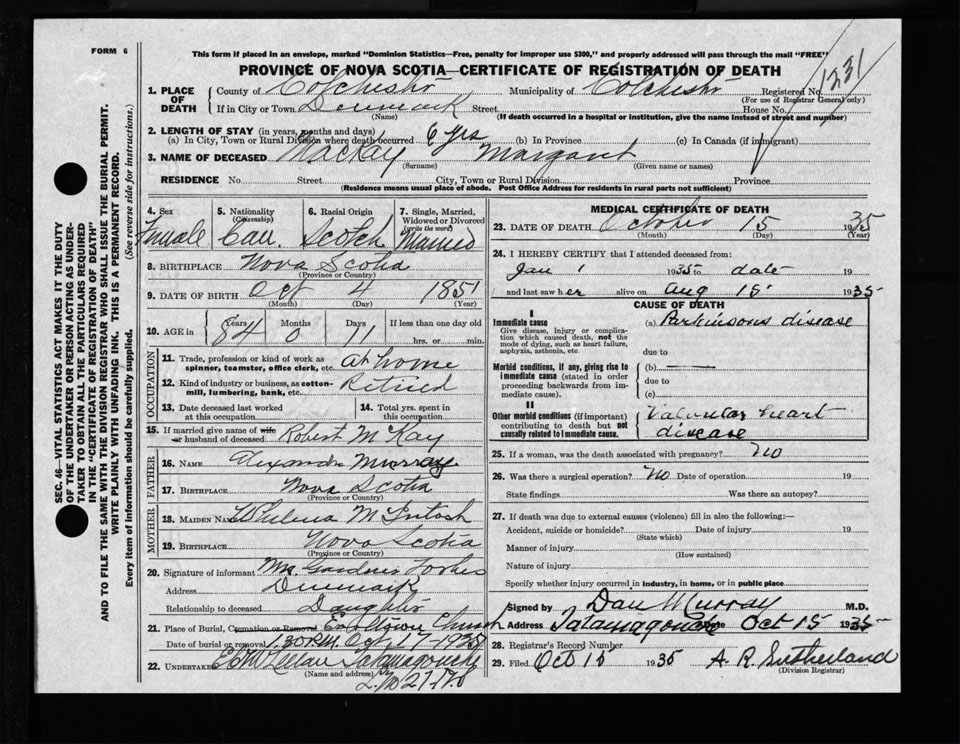 FORM 6
This form if placed in an envelope, marked "Dominion Statistics—Free, penalty for improper use $300," and properly addressed will pass through the mail "FREE"
PROVINCE OF NOVA SCOTIA—CERTIFICATE OF REGISTRATION OF DEATH
1231
1. PLACE OF DEATH
County of Colchester Municipality of Colchester Registered No.
(For use of Registrar General only)
If in City or Town Denmark Street House No.
(Name) (If death occurred in a hospital or institution, give the name instead of street and number)
2. LENGTH OF STAY (in years, months and days)
(a) In City, Town or Rural Division where death occurred 6 yrs (b) In Province (c) In Canada (if immigrant)
3. NAME OF DECEASED MacKay Margaret
(Surname) (Given name or names)
RESIDENCE No. Street City, Town or Rural Division Province
(Residence means usual place of abode. Post Office Address for residents in rural parts not sufficient)
4. Sex Female
5. Nationality (Citizenship) Can.
6. Racial Origin Scotch
7. Single, Married, Widowed or Divorced (write the word) Married
8. BIRTHPLACE Nova Scotia
(Province or Country)
9. DATE OF BIRTH Oct 4 1851
(Month) (Day) (Year)
10. AGE in Years 84 Months 0 Days 11 If less than one day old hrs. or min.
OCCUPATION
11. Trade, profession or kind of work as spinner, teamster, office clerk, etc. at home
12. Kind of industry or business, as cotton-mill, lumbering, bank, etc. Retired
13. Date deceased last worked at this occupation
14. Total yrs. spent in this occupation
15. If married give name of wife or husband of deceased Robert McKay
FATHER
16. NAME Alexander Murray
17. BIRTHPLACE Nova Scotia
(Province or Country)
MOTHER
18. MAIDEN NAME McIntosh
19. BIRTHPLACE Nova Scotia
(Province or Country)
20. Signature of informant Mrs. Gardner Forbes
Address Denmark
Relationship to deceased Daughter
21. Place of Burial, Cremation or Removal Church
Date of burial or removal 1.30 P.M. Oct 17 1935
22. UNDERTAKER Tatamagouche
(Name and address)
MEDICAL CERTIFICATE OF DEATH
23. DATE OF DEATH October 15 1935
(Month) (Day) (Year)
24. I HEREBY CERTIFY that I attended deceased from:
Jan 1 1935 to date 19
and last saw her alive on Aug 15 1935
CAUSE OF DEATH
I
Immediate cause
Give disease, injury or complication which caused death, not the mode of dying, such as heart failure, asphyxia, asthenia, etc.
(a) Parkinsons disease
due to
Morbid conditions, if any, giving rise to immediate cause (stated in order proceeding backwards from immediate cause).
(b)
due to
(c)
II
Other morbid conditions (if important) contributing to death but not causally related to immediate cause.
Valvular heart
disease
25. If a woman, was the death associated with pregnancy? No
26. Was there a surgical operation? No Date of operation 19
State findings Was there an autopsy?
27. If death was due to external causes (violence) fill in also the following:—
Accident, suicide or homicide? Date of injury 19
(State which)
Manner of injury
(How sustained)
Nature of injury
Specify whether injury occurred in industry, in home, or in public place
Signed by Dan Murray M.D.
Address Tatamagouche Date Oct 15 1935
28. Registrar's Record Number
29. Filed Oct 15 1935 A. R. Sutherland
(Division Registrar)
SEC. 46—VITAL STATISTICS ACT MAKES IT THE DUTY
OF THE UNDERTAKER OR PERSON ACTING AS UNDER-
TAKER TO OBTAIN ALL THE PARTICULARS REQUIRED
IN THE "CERTIFICATE OF REGISTRATION OF DEATH"
AND TO FILE THE SAME WITH THE DIVISION REGISTRAR WHO SHALL ISSUE THE BURIAL PERMIT.
WRITE PLAINLY WITH UNFADING INK. THIS IS A PERMANENT RECORD.
Every item of information should be carefully supplied. (See reverse side for instructions.)